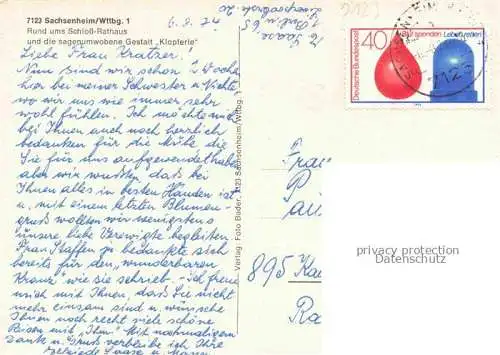 7123 Sachsenheim/Wttbg. 1
Rund ums Schloß-Rathaus
und die sagenumwobene Gestalt „Klopferle“
6.8.74
Liebe Frau Kratzer!
Nun sind wir schon 2 Wochen
hier bei meiner Schwester u. Nichte,
wo wir uns wie immer sehr
wohl fühlen. Ich möchte nur
bei Ihnen auch noch herzlich
bedanken für die Mühe die
Sie für uns aufgewendet haben
aber wir wussten daß bei
Ihnen alles in besten Händen ist
u. mit einem letzten Blumen-
gruß wollten wir wenigstens
unsere liebe Verewigte begleiten
Frau Steffen zu bedankte sich
bereits für den „wunderbaren
Kranz“ wie sie schrieb - Ich freue
mich mit Ihnen, daß Sie nicht
mehr einsam sind u. wünsche
Ihnen noch recht viele schöne
Reisen mit „Ihm“. Mit nochmaligem
Dank u. Gruß verbleibe ich Ihre
Verlag: Foto Bader, 7123 Sachsenheim/Wttbg. 1
Blut spenden Leben retten
40
Deutsche Bundespost
7123
Frau
P
au
895 Kau
Ra
privacy protection
Datenschutz